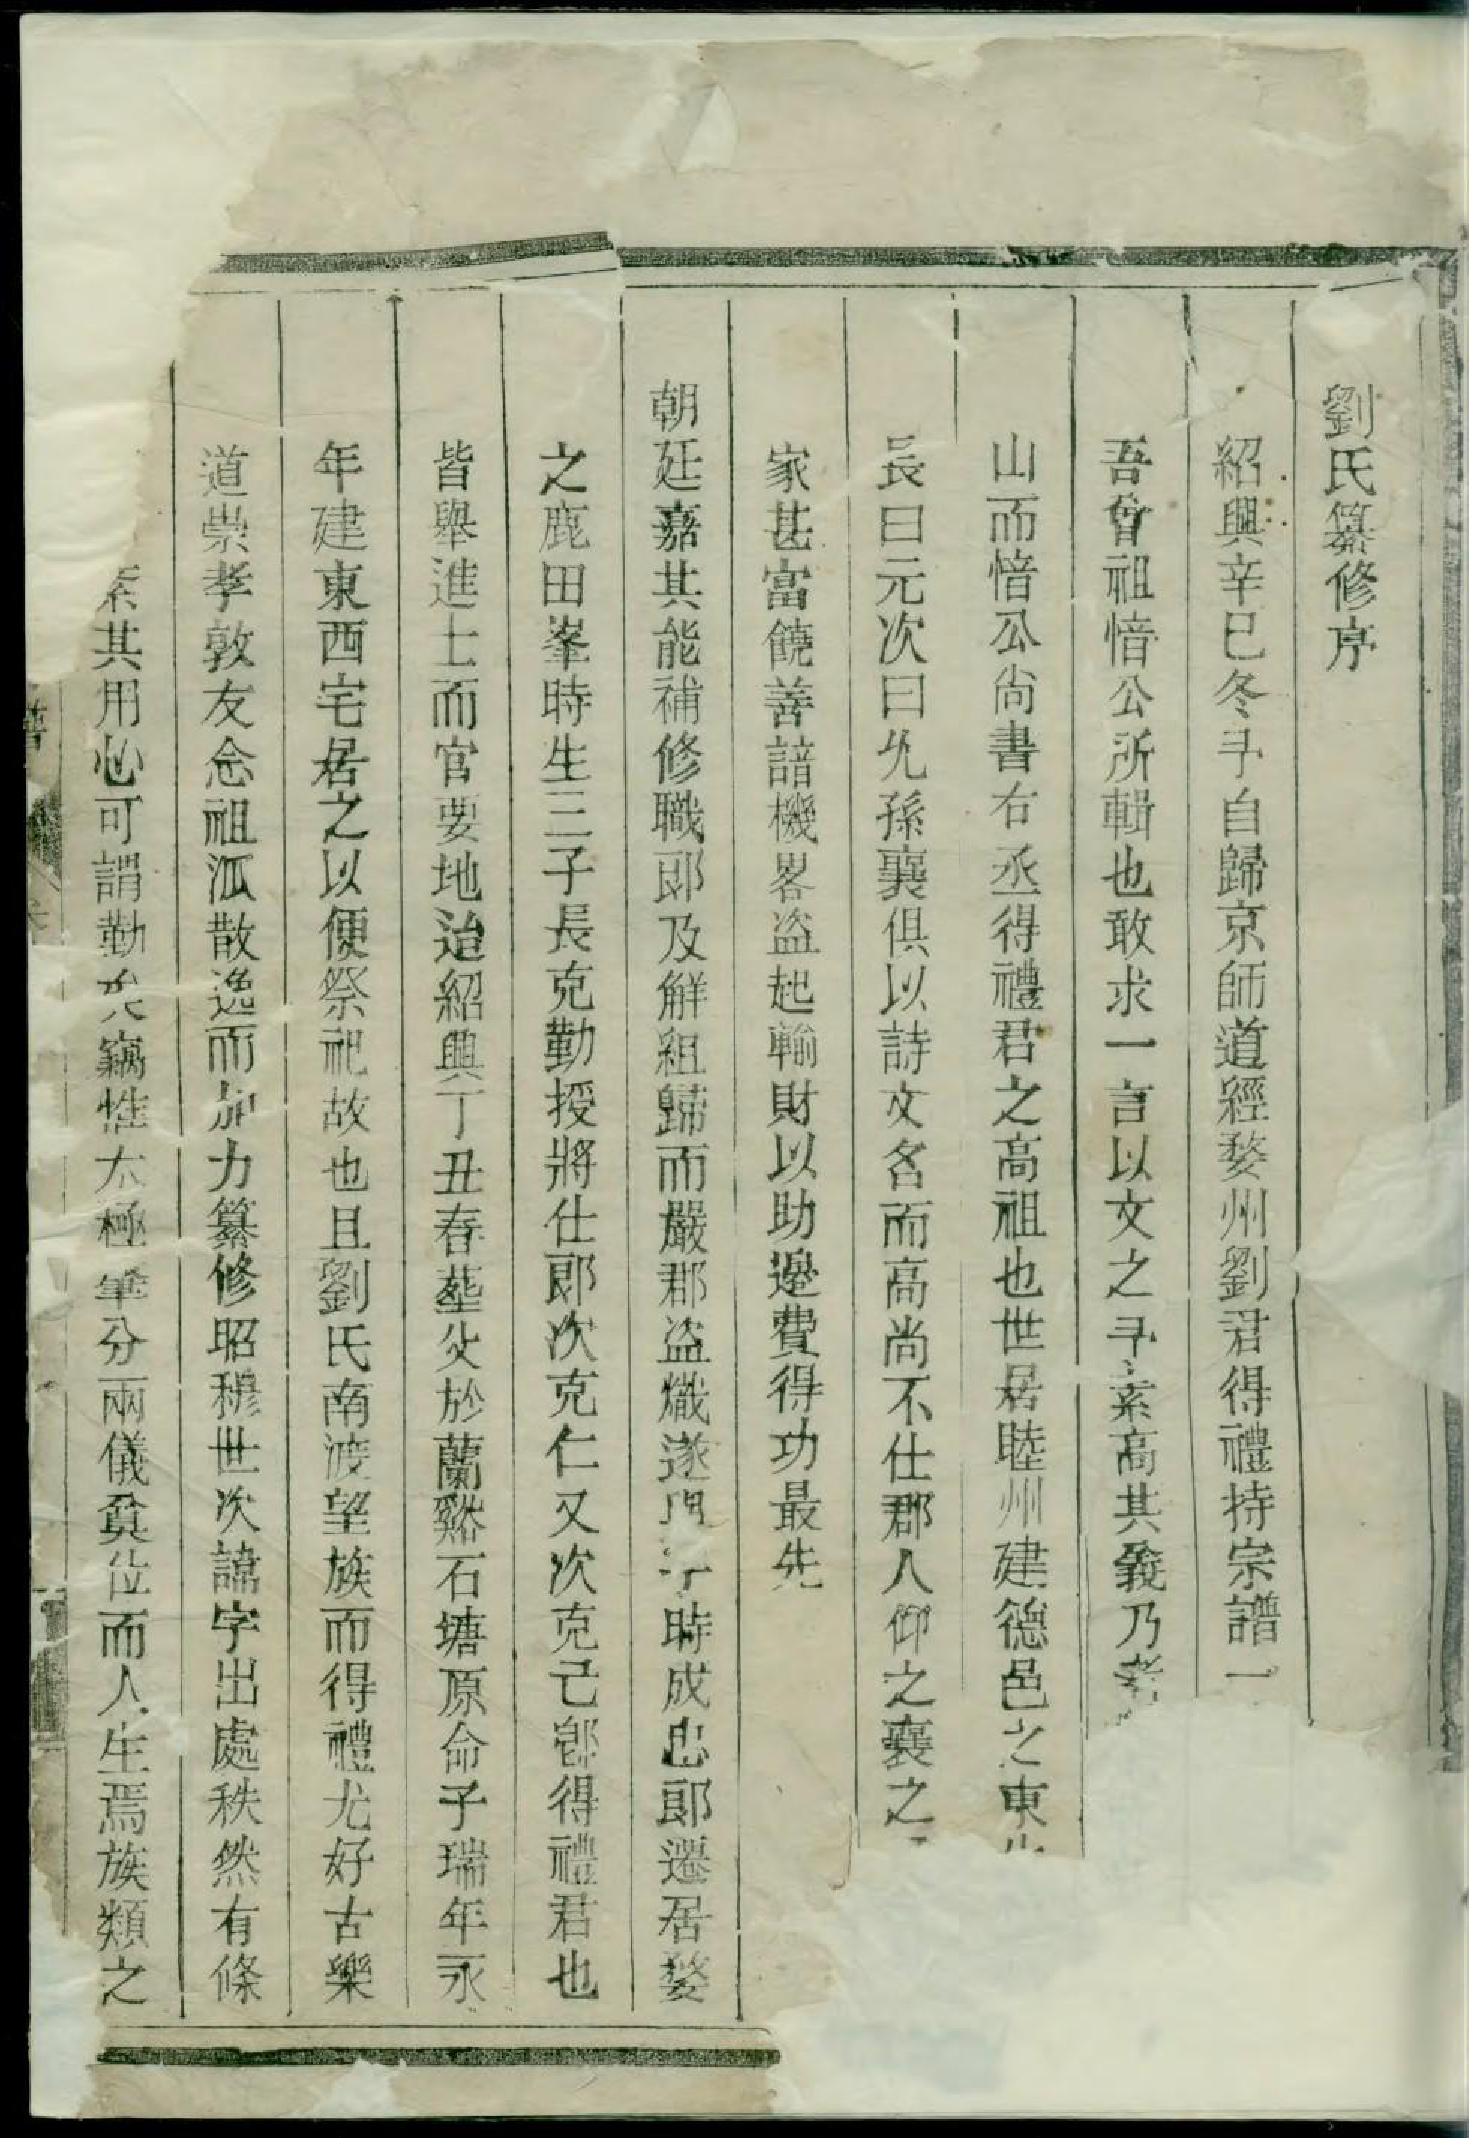 劉氏纂修序
紹興辛巳冬予自歸京師道經婺州劉君得禮持宗譜一
吾曾祖愔公所輯也敢求一言以文之予素高其義乃考
山而愔公尚書右丞得禮君之高祖也世居睦州建德邑之東
長曰元次曰先孫襄俱以詩文名而高尚不仕郡人仰之襄之
家甚富饒善諳機畧盜起輸財以助邊費得功最先
朝廷嘉其能補修職郎及觧組歸而嚴郡盜熾遂時成忠郎遷居婺
之鹿田峯時生三子長克勤授將仕郎次克仁又次克己卽得禮君也
皆舉進士而官要地迨紹興丁丑春塟父於蘭谿石塘原命子瑞年永
年建東西宅居之以便祭祀故也且劉氏南渡望族而得禮尤好古樂
道崇孝敦友念祖派散逸而加力纂修昭穆世次諱字出處秩然有條
其用心可謂勤矣竊惟太極肇分兩儀奠位而人生焉族類之